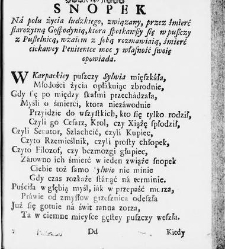 SNOPEK
Na polu życia ludzkiego, związany, przez śmierć
starożytną Gospodynią, ktora spotkawszy się w puszczy
z Pustelnicą, wzaiem z sobą rozmawiaią, śmierć
ciekawey Penitentce moc y własność swoię
opowiada.
W Karpackiey puszczy Sylwia mięszkała,
Młodości życia opłakuiąc zbrodnie,
Gdy się po między skałmi przechadzała,
Myśli o śmierci, ktora niezawodnie
Przyidzie do wszystkich, kto się tylko rodził,
Czyli go Cesarz, Krol, czy Xiążę spłodził,
Czyli Senator, Szlachcic, czyli Kupiec,
Czyto Rzemieślnik, czyli prosty chłopek,
Czyto Filozof, czy bezmozgi głupiec,
Zarowno ich śmierć w ieden zwiąże snopek
Ciebie toż samo Sylwio nie minie
Gdy czas rozkaże stanąć na terminie.
Puściła w głębią myśl, iak w przepaść morza,
Prawie od zmysłow grzesznica odeszła
Już się gotnie na świt ranna zorza,
Ta w ciemne mieysce gęstey puszczy weszła.
Dd
Kiedy